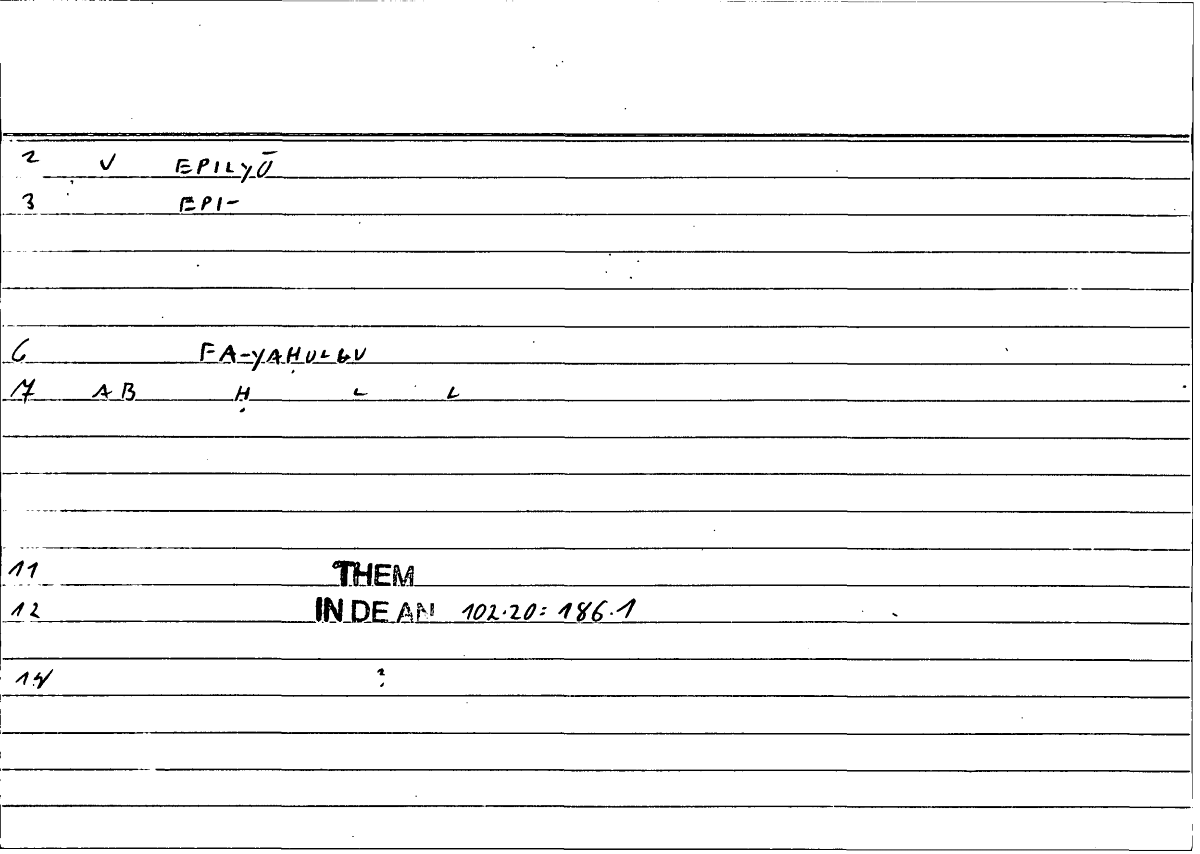 2 V EPILYŪ
3 EPI-
6 FA-YAḤULLU
7 AB Ḥ L L
11 THEM
12 IN DE AN 102.20: 186.1
14 ?